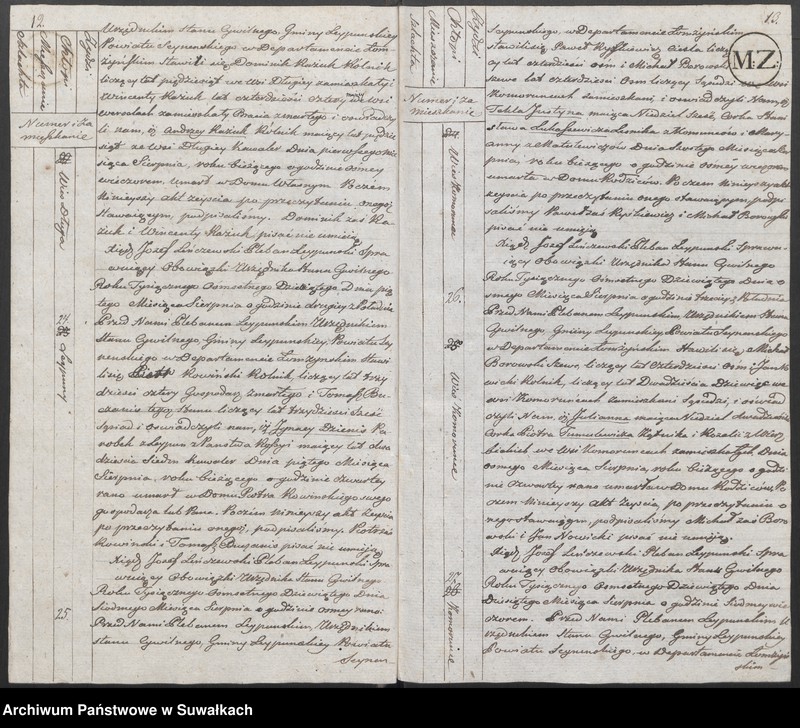 12.
Urzędnikiem Stanu Cywilnego, Gminy Leypunskiey
Powiatu Seynenskiego w Departamencie Łom-
żynskim Stawił się Dominik Każuk Rolnik
liczący lat pięćdziesiąt we Wsi Długiey zamieszkały i
Wincenty Każuk lat czterdzieści cztery we Wsi
zamieszkały Bracia zmarłego i oświadczy-
li nam, iż Andrzey Każuk Rolnik maiący lat
ze Wsi Długiey Kawaler Dnia pierwszego Mie-
siąca Sierpnia, roku bieżącego o godzinie ósmey
wieczorem, umarł w Domu Własnym. Poczem
Ninieyszy akt zeyscia po przeczytaniu onego
Stawaiącym, podpisaliśmy. Dominik zaś Ka-
żuk i Wincenty Każuk pisać nie umieią
Xiądz Jozef Liniszewski Pleban Leypunski Spra-
wuiący Obowiązki Urzędnika Stanu Cywilnego
Roku Tysiącznego Osmsetnego Dziewiątego Dnia pią-
tego Miesiąca Sierpnia o godzinie drugiey z Południa
Przed Nami Plebanem Leypunskim Urzędnikiem
Stanu Cywilnego, Gminy Leypunskiey, Powiatu Sey-
nenskiego w Departamencie Łomżynskim Stawi-
li się Piotr Kowinski Rolnik, liczący lat trzy
dzieści cztery Gospodarz zmarłego i Tomasz Bu-
zanis tegoż Stanu liczący lat trzydzieści sześć
Sąsiad i oświadczyli nam, iż Jgnacy Dzienis Pa-
robek z Leypun maiący lat dwa
dzieścia siedm Kawaler Dnia piątego Miesiąca
Sierpnia, roku bieżącego o godzinie czwartey
rano umarł w Domu Piotra Kowinskiego swego
gospodarza lub Pana. Poczem ninieyszy akt zeyscia
po przeczytaniu onegoż, podpisaliśmy. Piotr zaś
Kowinski i Tomasz Buzanis pisać nie umieią
Xiądz Jozef Liniszewski Pleban Leypunski Spra-
wuiący Obowiązki Urzędnika Stanu Cywilnego
Roku Tysiącznego Osmsetnego Dziewiątego Dnia
Siodmego Miesiąca Sierpnia o godzinie osmey rano
Przed Nami Plebanem Leypunskim Urzędnikiem
Stanu Cywilnego, Gminy Leypunskiey Powiatu
Seynen-
Numer i za
mieszkanie
Wieś Długa
24.
Leypuny
25.
13.
M:Z:
Seynenskiego, w Departamencie Łomżynskim
Stawili się, Paweł Ryszkiewicz Cieśla liczą-
cy lat czterdzieści osm i Michał Borowski
Szewc lat czterdzieści osm liczący Sąsiedzi we Wsi
Komoruncach zamieszkani i oświadczyli Nam, iż
Tekla Justyna maiąca Niedziel sześć, Corka Stani-
sława Łukaszewicza Rolnika z Komorunców i Mary-
anny z Matulewiczów Dnia szostego Miesiąca Sier-
pnia, roku bieżącego o godzinie osmey wieczorem
umarła w Domu Rodziców. Poczem Ninieyszy akt
zeyscia po przeczytaniu onego stawaiącym, podpi-
saliśmy Paweł zaś Ryszkiewicz i Michał Borowski
pisać nie umieią
Xiądz Jozef Liniszewski Pleban Leypunski Sprawu-
iący Obowiązki Urzędnika Stanu Cywilnego
Roku Tysiącznego Osmsetnego Dziewiątego Dnia o-
smego Miesiąca Sierpnia o godzinie trzeciey z Południa
Przed Nami Plebanem Leypunskim, Urzędnikiem Stanu
Cywilnego, Gminy Leypunskiey Powiatu Seynenskiego
w Departamencie Łomżynskim Stawili się Michał
Borowski Szewc, liczący lat czterdzieści osm i Jan No-
wicki Rolnik, liczący lat Dwadzieścia Dziewięć we
Wsi Komoruncach zamieszkani Sąsiedzi, i oświad-
czyli Nam, iż Julianna maiąca Niedziel dwadzieścia
Corka Piotra Tumielewicza Rolnika i Rozalii
we Wsi Komoruncach zamieszkałych Dnia
osmego Miesiąca Sierpnia, roku bieżącego o godzi-
nie czwartey rano umarła w Domu Rodziców. Po-
czem Ninieyszy Akt Zeyscia, po przeczytaniu o-
nego stawaiącym, podpisaliśmy Michał zaś Boro-
wski i Jan Nowicki pisać nie umieią.
Xiądz Jozef Liniszewski Pleban Leypunski Spra-
wuiący Obowiązki Urzędnika Stanu Cywilnego
Roku Tysiącznego Osmsetnego Dziewiątego Dnia
Dziesiątego Miesiąca Sierpnia o godzinie Siodmey wie-
czorem. Przed Nami Plebanem Leypunskim U-
rzędnikiem Stanu Cywilnego, Gminy Leypunskiey
Powiatu Seynenskiego, w Departamencie Łomżyn-
skim
Numer i za
mieszkanie
Wieś Komorunce
26.
Wieś Komorunce
27.
Komorunce
Archiwum Państwowe w Suwałkach